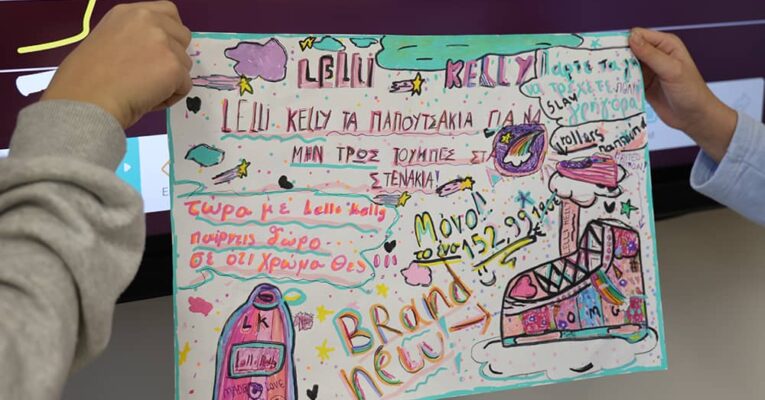 LELLI KELLY
LELLI KELLY ΤΑ ΠΑΠΟΥΤΣΑΚΙΑ ΓΙΑ ΝΑ
ΜΗΝ ΤΡΩΣ ΤΟΥΜΠΕΣ ΣΤΑ
ΣΤΕΝΑΚΙΑ!
Πάρτε τα για
να τρέχετε πολύ
γρήγορα
SLAY
τώρα με Lelli Kelly
παίρνεις δώρο
σε ότι χρώμα θες!!!
Μόνο!!
το ένα 152,99
Brand
new
LELLI KELLY
O M G
L K
Lelli Kelly
MADE
LOVE